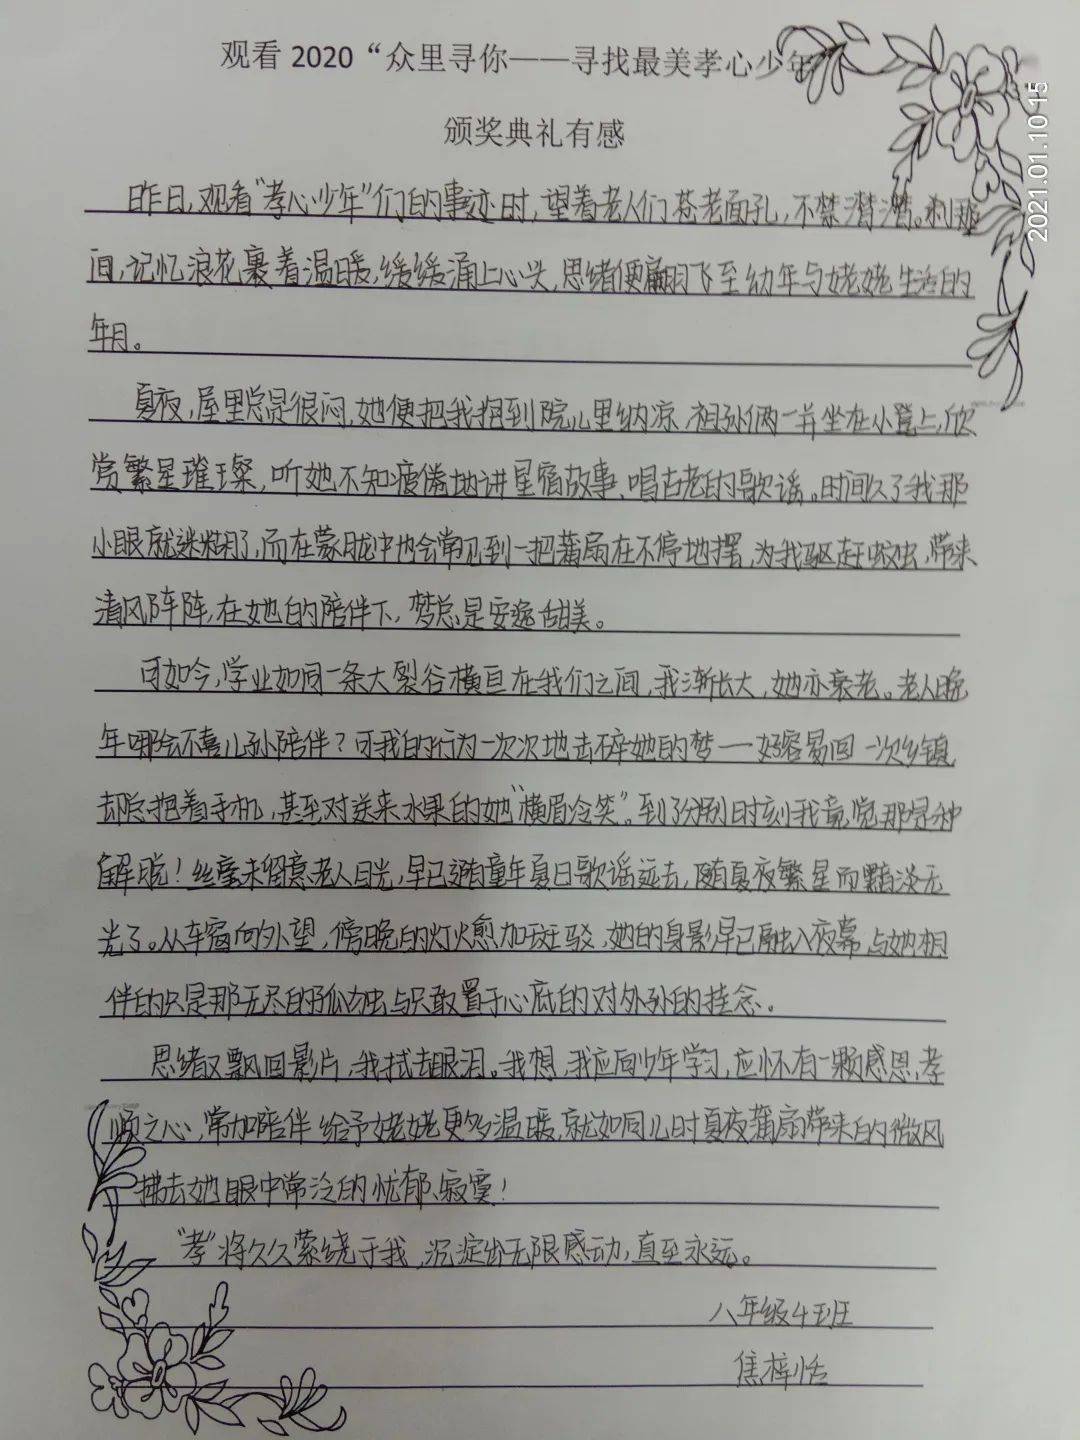 观看 2020 “众里寻你——寻找最美孝心少年
颁奖典礼有感
2021.01.10 15
昨日，观看“孝心少年”们的事迹时，望着老人们苍老面孔，不禁潸潸。刹那
间，记忆浪花裹着温暖，缓缓涌上心头，思绪便翩翩飞至幼年与姥姥生活的
年月。
夏夜，屋里总是很闷，她便把我抱到院儿里纳凉，祖孙俩一并坐在小凳上，欣
赏繁星璀璨，听她不知疲倦地讲星宿故事、唱古老的歌谣。时间久了我那
小眼就迷糊了，而在蒙胧中也会常见到一把蒲扇在不停地摆，为我驱赶蚊虫，带来
清风阵阵，在她的陪伴下，梦总是安逸甜美。
可如今，学业如同一条大裂谷横亘在我们之间，我渐长大，她亦衰老。老人晚
年哪会不喜儿孙陪伴？可我的行为一次次地击碎她的梦——好容易回一次乡镇
却总抱着手机，甚至对送来水果的她“横眉冷笑”。到了分别时刻我竟觉那是种
解脱！丝毫未留意老人目光，早已随童年夏日歌谣远去，随夏夜繁星而黯淡无
光了。从车窗向外望，傍晚的灯火愈加斑驳，她的身影早已融入夜幕，与她相
伴的只是那无尽的孤独与只敢置于心底的对外孙的挂念。
思绪又飘回影片，我拭去眼泪。我想，我应向少年学习，应怀有一颗感恩、孝
顺之心，常加陪伴给予姥姥更多温暖，就如同儿时夏夜蒲扇带来的微风
拂去她眼中常泛的忧郁、寂寞！
“孝”将久久萦绕于我，沉淀出无限感动，直至永远。
八年级4班
焦梓恬